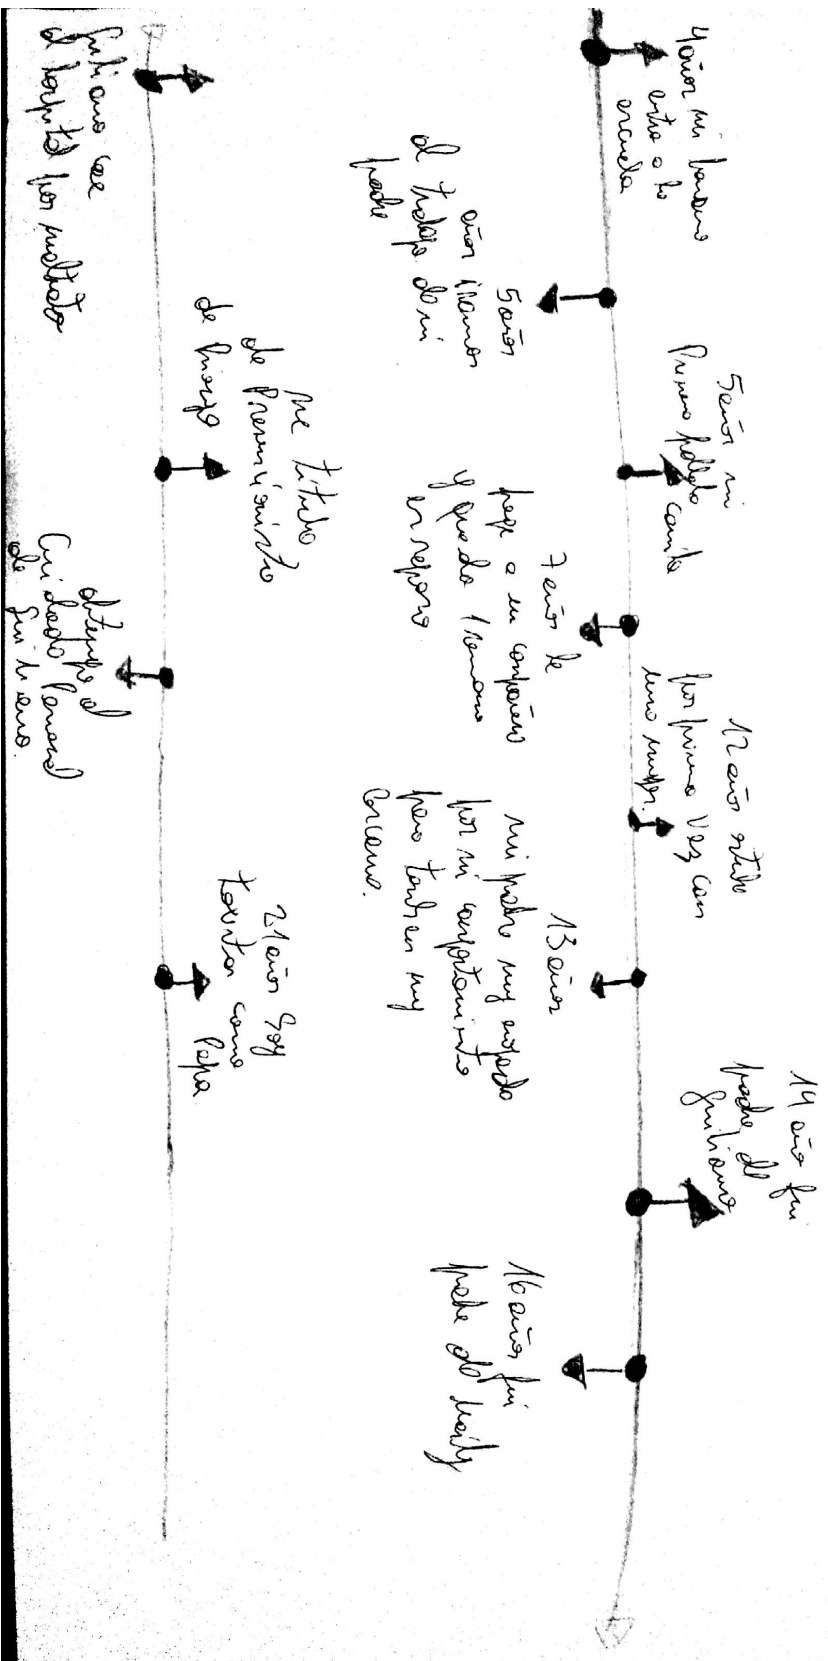 4 años mi hermano
entro a la
escuela
5 años
años íbamos
al trabajo de mi
padre
5 años mi
Primera pelota
7 años le
pego a un compañero
y quedo 1 semana
en reposo.
12 años estube
por primera vez con
una mujer.
13 años
mi padre muy enojado
por mi comportamiento
pero tambien muy
cercano.
14 año fui
padre de
Guiliano
16 años fui
padre de
Guiliano cae
al hospital por maltrato
me titulo
de Prevencionista
de Riesgo
obtengo el
Cuidado Personal
de Guiliano.
21 años Soy
como
Papa